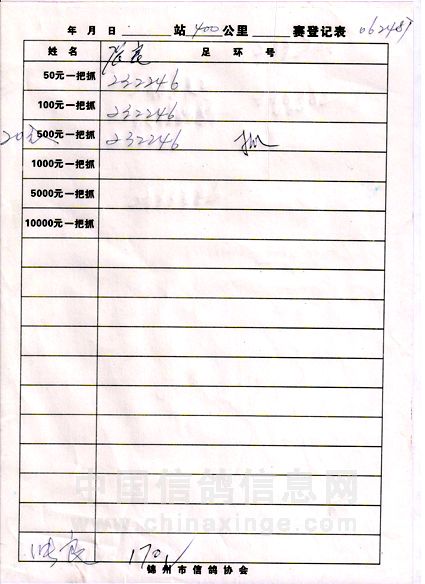 年 月 日 站 400 公里 赛登记表 062487
姓名 足环号
50元一把抓 232246
100元一把抓 232246
200元 500元一把抓 232246
1000元一把抓
5000元一把抓
10000元一把抓
中国信鸽信息网
www.chinaxinge.com
170
锦州市信鸽协会